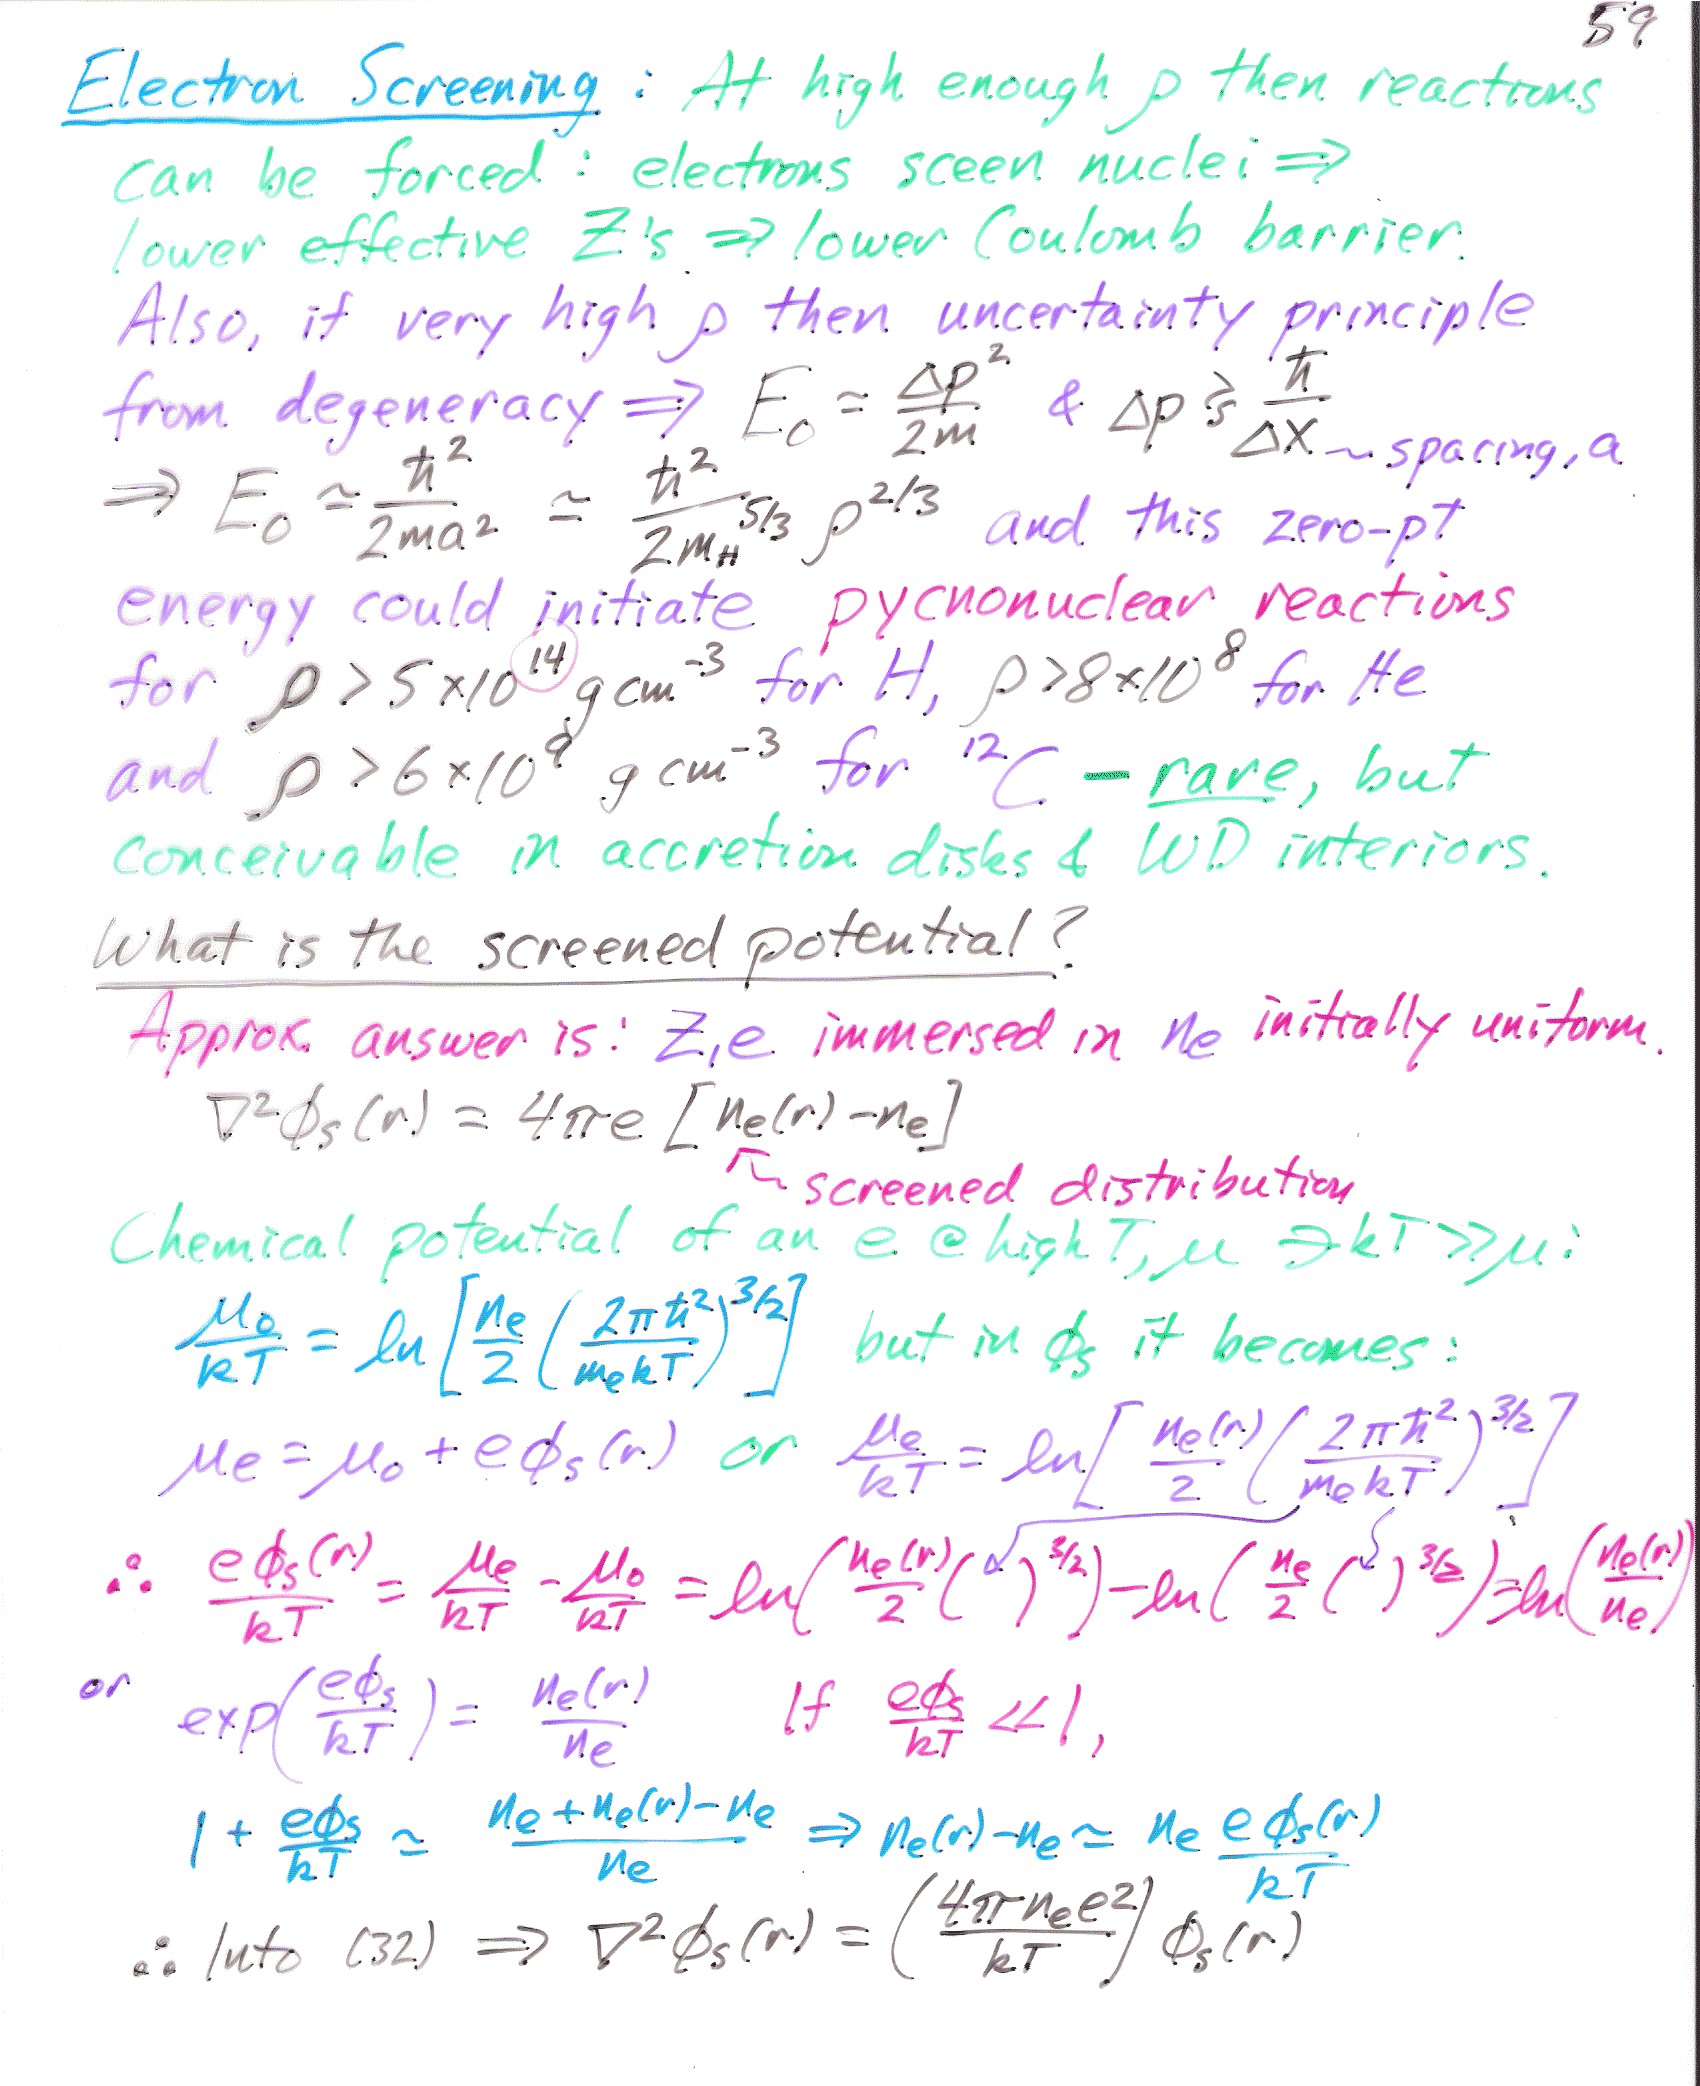 59
Electron Screening : At high enough ρ then reactions
can be forced : electrons sceen nuclei ⇒
lower effective Z's ⇒ lower Coulomb barrier.
Also, if very high ρ then uncertainty principle
from degeneracy ⇒ E₀ ≃ Δp²/2m & Δp ≳ ħ/Δx ~ spacing, a
⇒ E₀ ≃ ħ²/2ma² ≃ ħ²/2m_H^5/3 ρ^2/3 and this zero-pt
energy could initiate pycnonuclear reactions
for ρ > 5×10^14 g cm^-3 for H, ρ > 8×10^8 for He
and ρ > 6×10^9 g cm^-3 for ¹²C – rare, but
conceivable in accretion disks & WD interiors.
What is the screened potential?
Approx. answer is: Z,e immersed in n_e initially uniform.
∇²ϕ_s(r) = 4πe [n_e(r) − n_e]
screened distribution
Chemical potential of an e @ high T, μ ⇒ kT >> μ :
μ₀/kT = ln[n_e/2 (2πħ²/m_e kT)^3/2] but in ϕ_s it becomes :
μ_e = μ₀ + eϕ_s(r) or μ_e/kT = ln[n_e(r)/2 (2πħ²/m_e kT)^3/2]
∴ eϕ_s(r)/kT = μ_e/kT − μ₀/kT = ln(n_e(r)/2 ( )^3/2) − ln(n_e/2 ( )^3/2) = ln(n_e(r)/n_e)
or exp(eϕ_s/kT) = n_e(r)/n_e If eϕ_s/kT << 1,
1 + eϕ_s/kT ≃ n_e + n_e(r) − n_e/n_e ⇒ n_e(r) − n_e ≃ n_e eϕ_s(r)/kT
∴ Into (32) ⇒ ∇²ϕ_s(r) = (4πn_e e²/kT) ϕ_s(r)